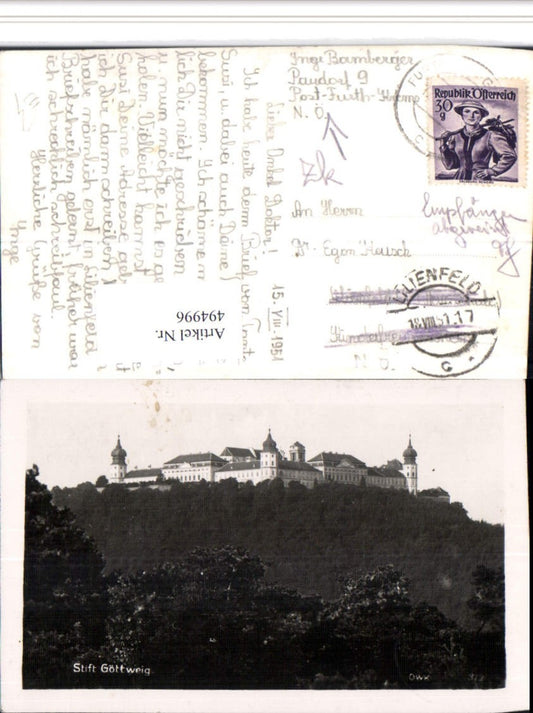 Inge Bamberger
Paudorf 9
Post-Furth-Krems
N. Ö.
Zk
An Herrn
Dr. Egon Hausch
N. Ö.
Republik Österreich
30
g
Empfänger
abgereist
LILIENFELD
18.VIII.51.17
c
15. VIII. 1951
Lieber Onkel Doktor!
Ich habe heute denn Brief von Tante
Susi, u dabei auch Deine
bekommen. Ich schäme m
lich Dir nicht geschrieben
u. nun möchte ich es ge
holen. Vielleicht kannst
Susi Deine Adresse geb
ich Dir dann schreiben!
habe nämlich erst in Lilienfeld
Briefschreiben gelernt früher war
ich schrecklich schreibfaul.
Herzliche Grüße von
Inge
Artikel Nr.
494996
Stift Göttweig